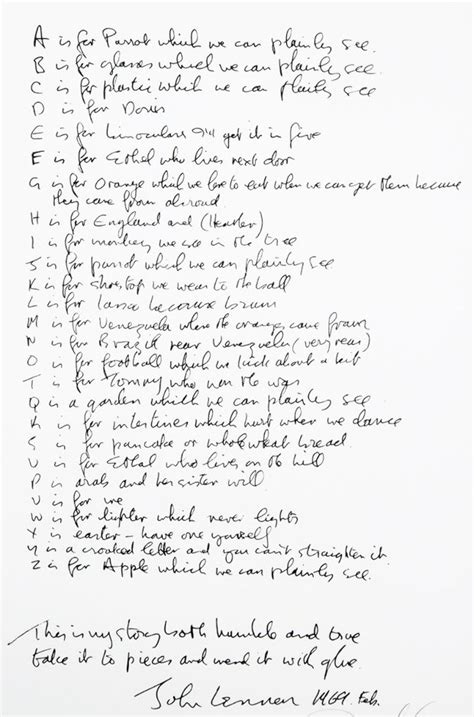 A is for Parrot which we can plainly see.
B is for glasses which we can plainly see.
C is for plastic which we can plainly see
D is for Doris
E is for binoculars I'll get it in five
F is for Ethel who lives next door
G is for Orange which we love to eat when we can get them because
they come from abroad.
H is for England and (Heather)
I is for monkey we see in the tree
J is for parrot which we can plainly see
K is for shoestop we wear to the ball
L is for lance because brum
M is for Venezuela where the oranges come from
N is for Brazil near Venezuela (very near)
O is for football which we kick about a bit
T is for Tommy who won the war
Q is a garden which we can plainly see
R is for intestines which hurt when we dance
S is for pancake or whole wheat bread
U is for Ethel who lives on the hill
P is arab and her sister will
V is for me
W is for lighter which never lights
X is easter - have one yourself
Y is a crooked letter and you can't straighten it
Z is for Apple which we can plainly see.
This is my story both humble and true
take it to pieces and mend it with glue.
John Lennon 1969. Feb.